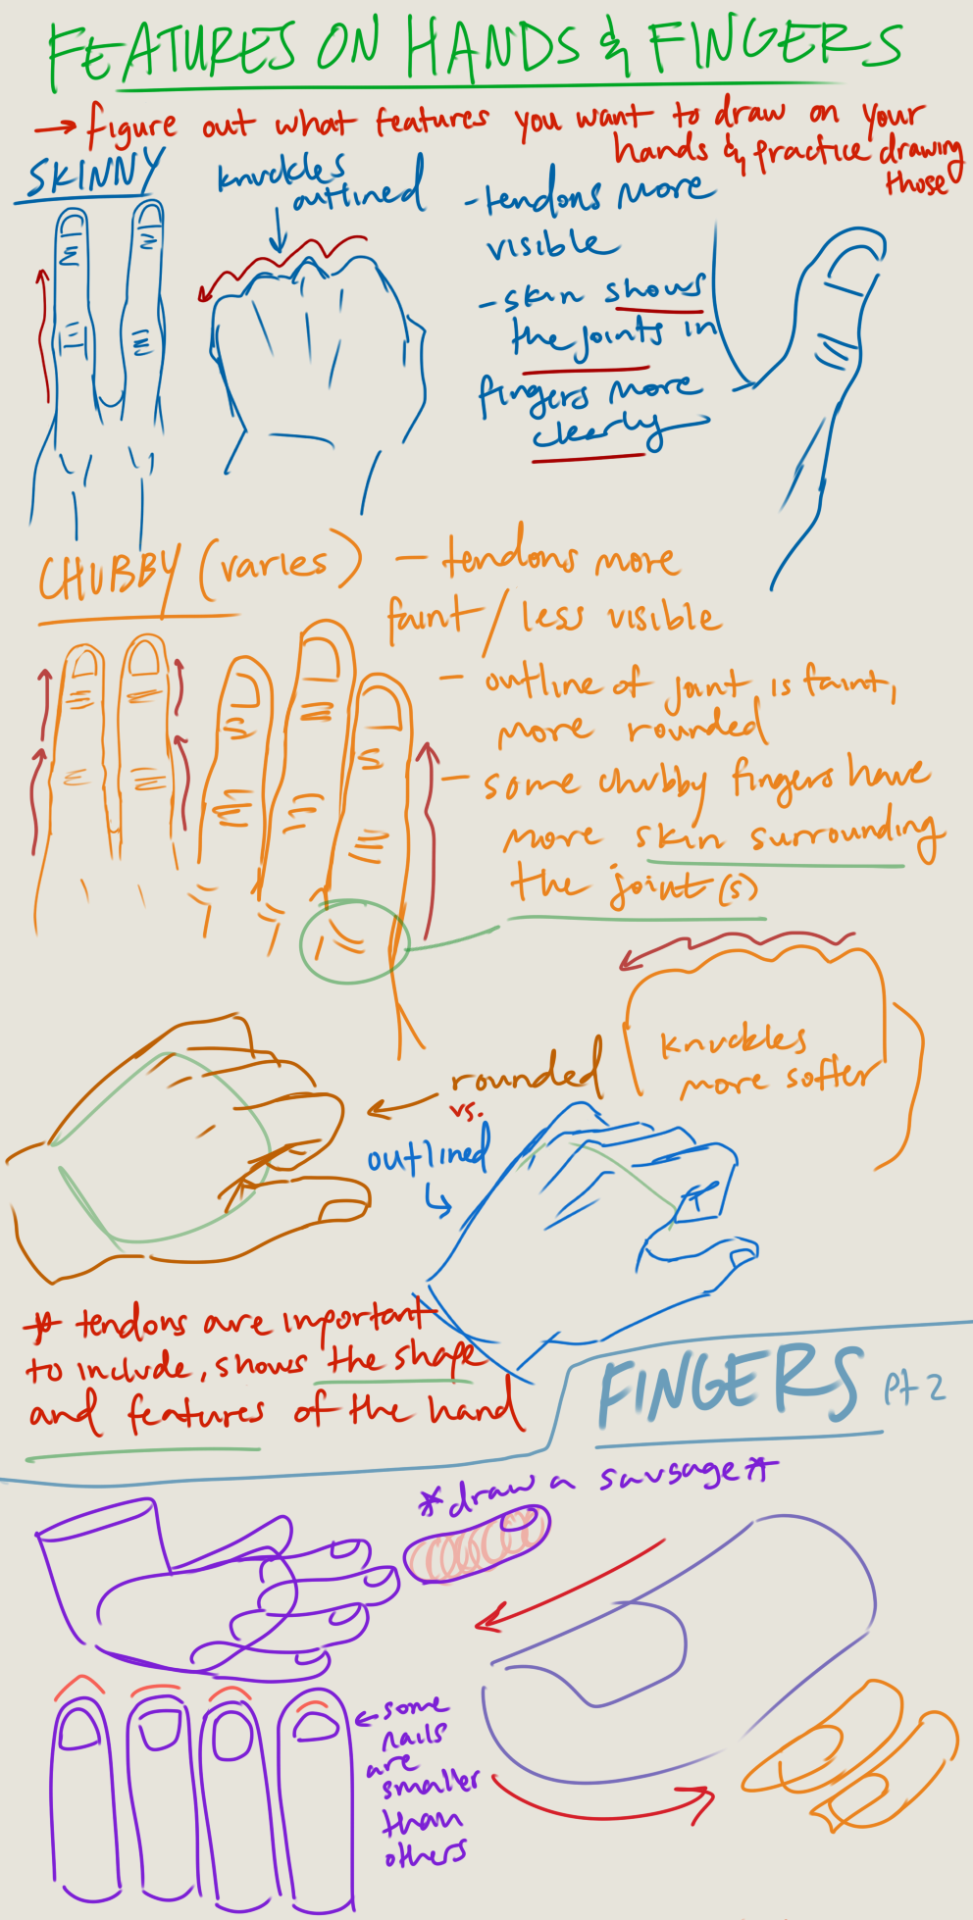 FEATURES ON HANDS & FINGERS
→ figure out what features you want to draw on your
hands & practice drawing
those
SKINNY
knuckles
outlined
- tendons more
visible
- skin shows
the joints in
fingers more
clearly
CHUBBY (varies)
- tendons more
faint / less visible
- outline of joint is faint,
more rounded
- some chubby fingers have
more skin surrounding
the joint(s)
knuckles
more softer
rounded
vs.
outlined
* tendons are important
to include, shows the shape
and features of the hand
FINGERS pt 2
*draw a sausage*
← some
nails
are
smaller
than
others